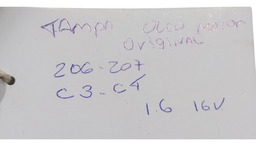 TAMPA OLEO MOTOR
ORIGINAL
206-207
C3-C4
1.6 16V